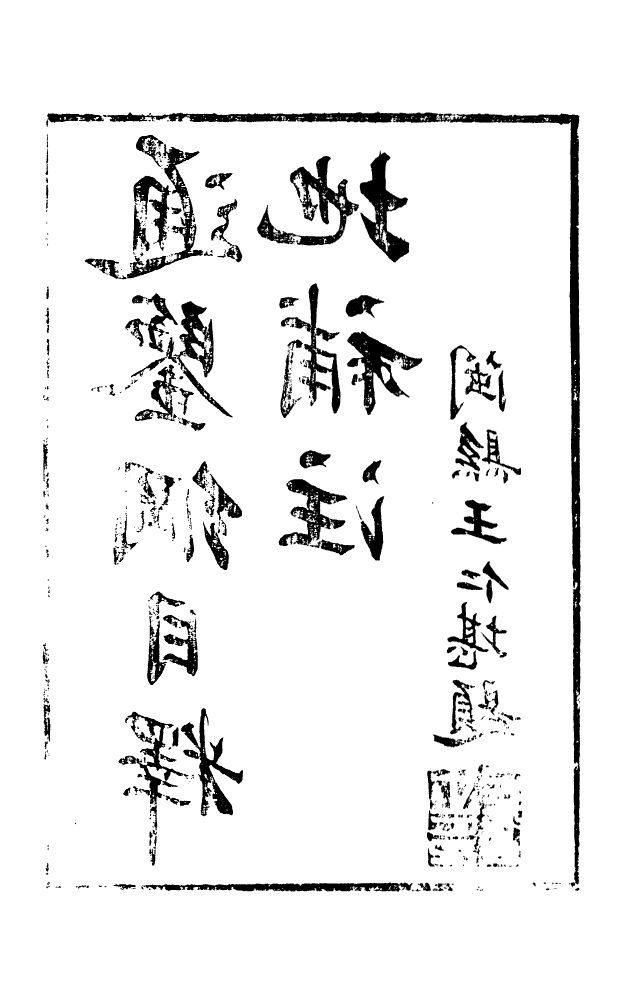 通鑒綱目釋
地補注
閩縣王仁堪題